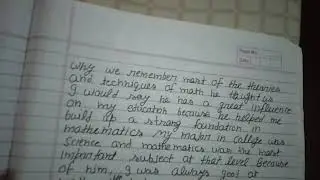 Why we remember most of the theories
and techniques of math he thought us
I would say he has a great influence
on my educator because he helped me
build up a strong foundation in
mathematics my major in college was
science and mathematics was the most
important subject at that level Because
of him, I was always good at